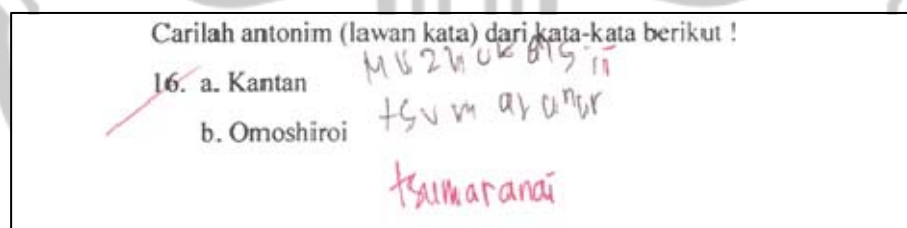 Carilah antonim (lawan kata) dari kata-kata berikut !
16. a. Kantan
b. Omoshiroi tsumaranar
tsumaranai